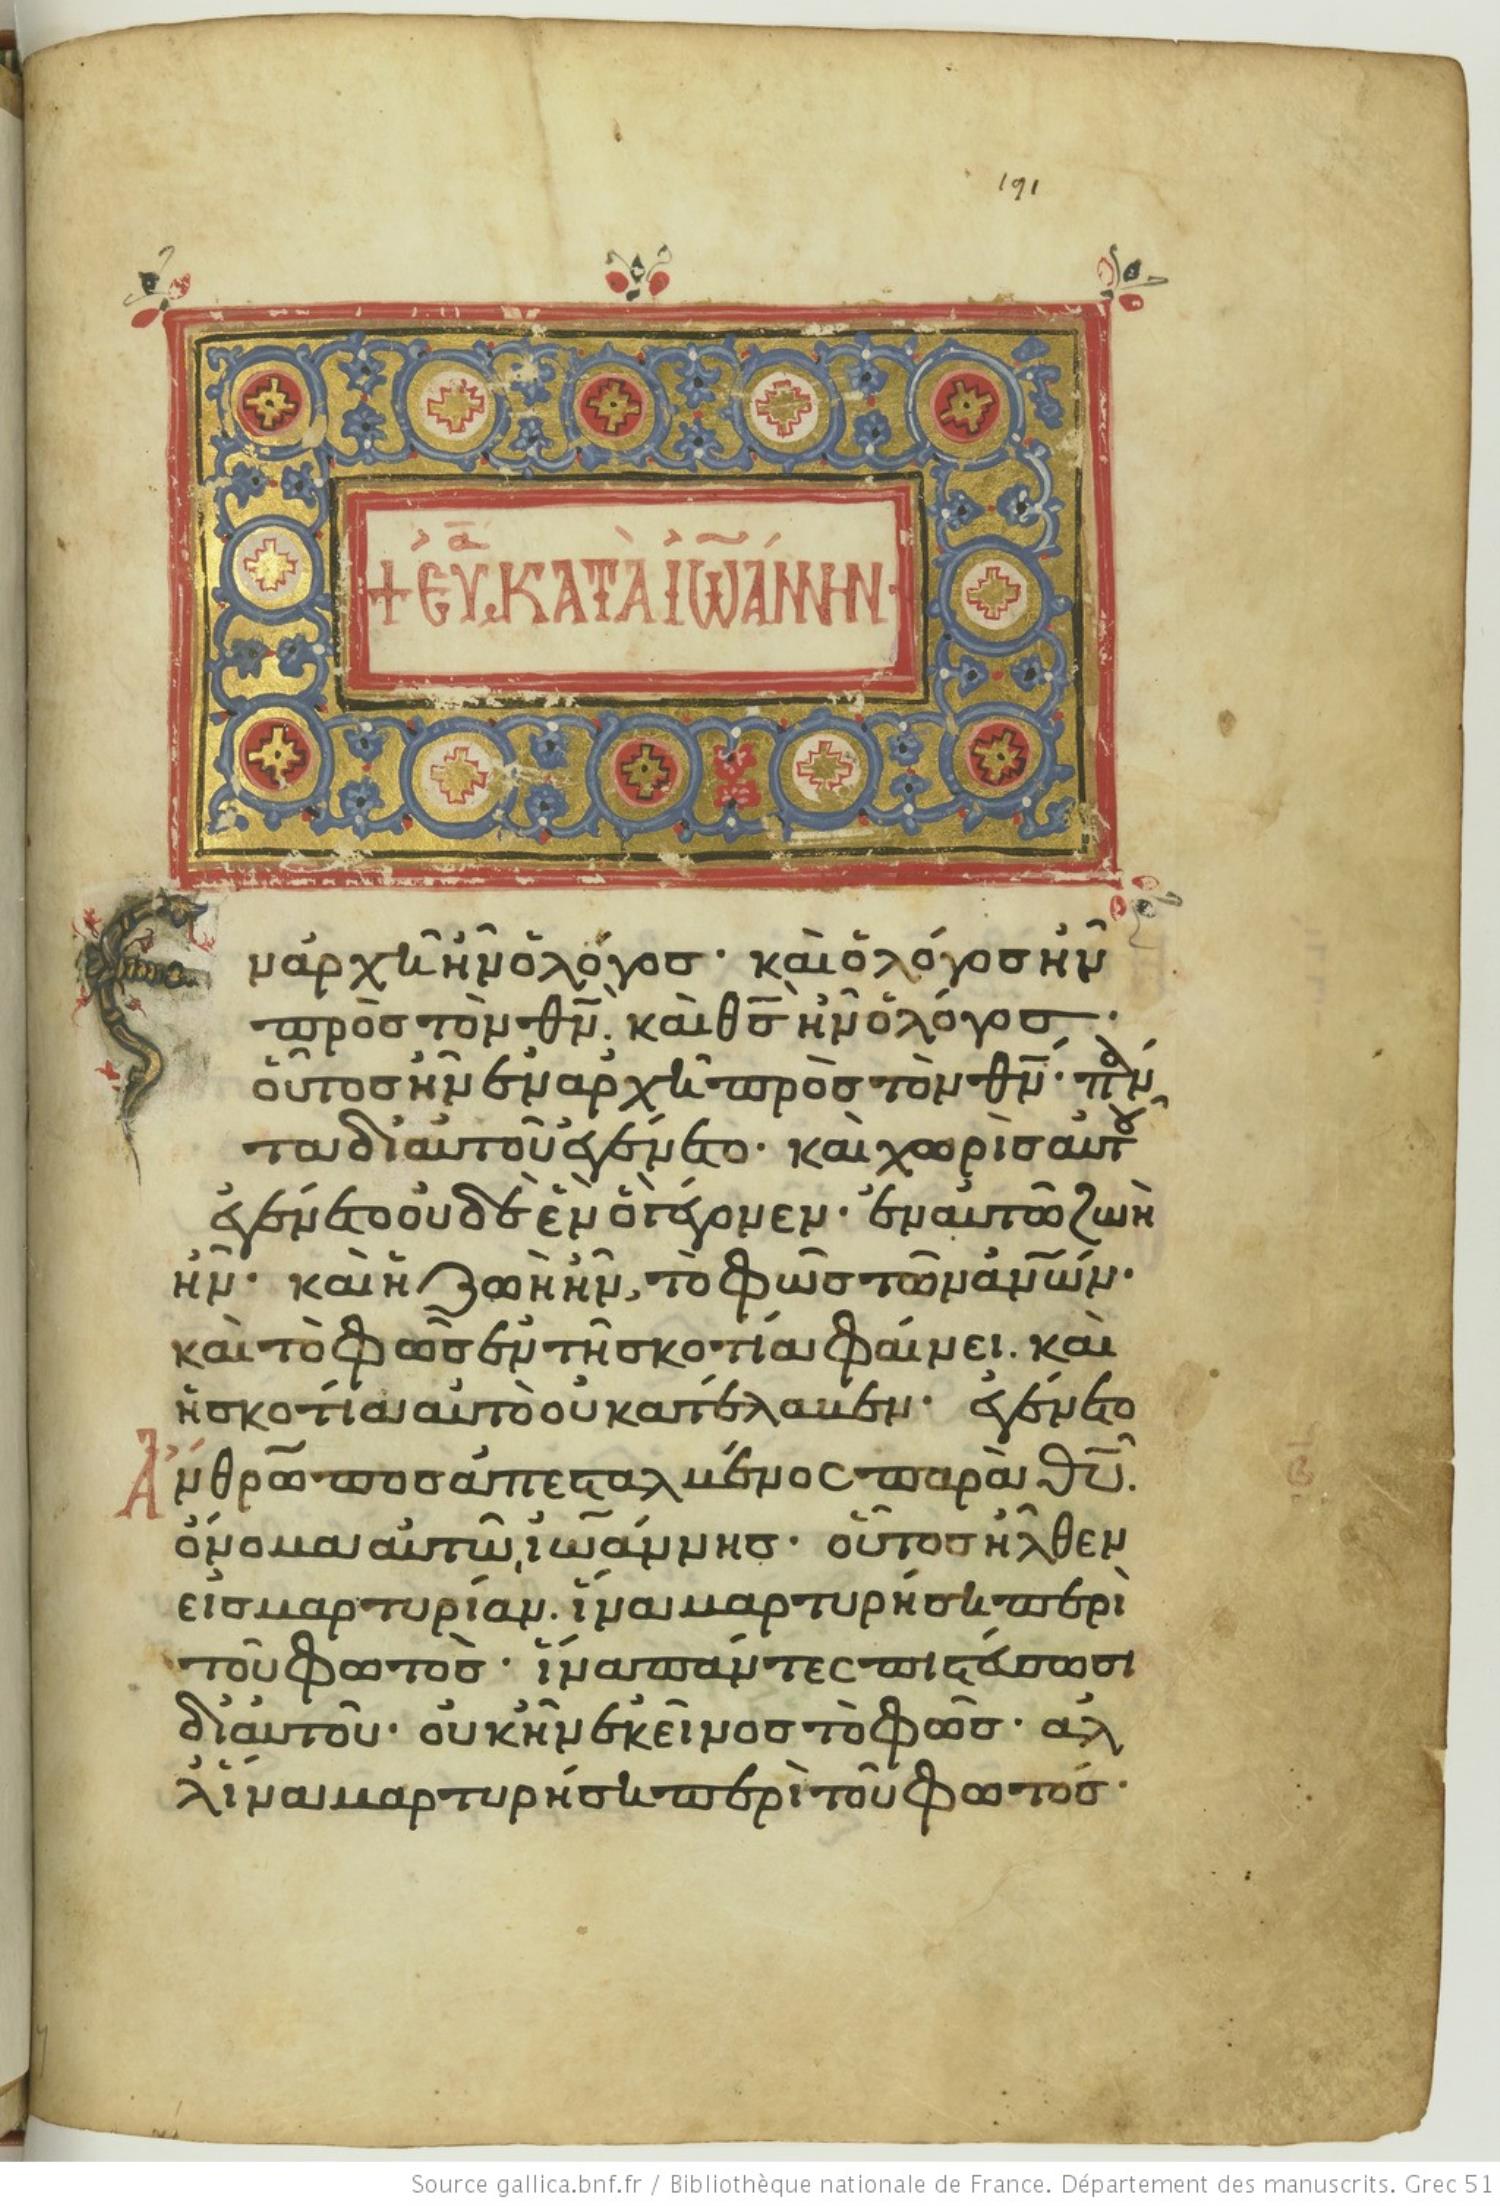 191
+ ἐυα κατὰ ἰωάννην
Ἐν ἀρχῆ ἦν ὁ λόγος · καὶ ὁ λόγος ἦν
πρὸς τὸν θν̄. καὶ θς̄ ἦν ὁ λόγος ·
οὗτος ἦν ἐν ἀρχῆ πρὸς τὸν θν̄ · πάν
τα δι ἀυτοῦ ἐγένετο · καὶ χωρὶς ἀυτοῦ
ἐγένετο οὐδὲ ἓν ὃ γέγονεν · ἐν ἀυτῶ ζωὴ
ἦν · καὶ ἡ ζωὴ ἦν, τὸ φῶς τῶν ἀν̄ων ·
καὶ τὸ φῶς ἐν τῆ σκοτία φαίνει. καὶ
ἡ σκοτία ἀυτὸ οὐ κατέλαβεν · ἐγένετο
Ἄνθρωπος ἀπεσταλμένος παρὰ θῡ.
ὄνομα ἀυτῶ, ἰωάννης · οὗτος ἦλθεν
εἰς μαρτυρίαν. ἵνα μαρτυρήση περὶ
τοῦ φωτὸς · ἵνα πάντες πιστέυσωσι
δι ἀυτοῦ · οὐκ ἦν ἐκεῖνος τὸ φῶς · ἀλ
λ ἵνα μαρτυρήση περὶ τοῦ φωτός ·
β
Source gallica.bnf.fr / Bibliothèque nationale de France. Département des manuscrits. Grec 51